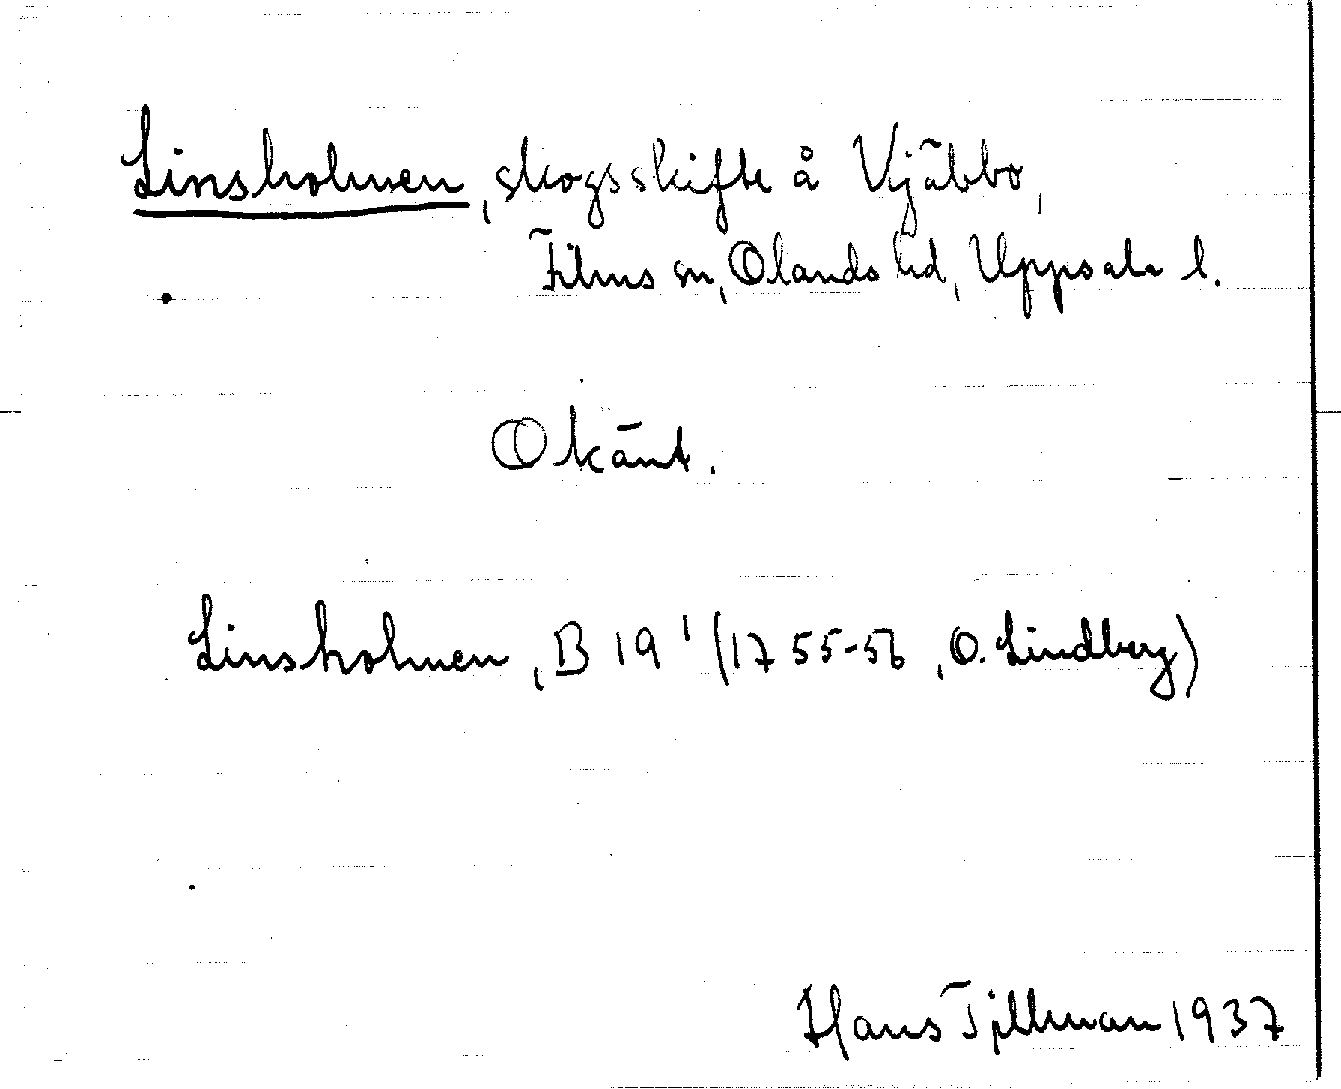 Linsholmen, skogsskifte å Vjäbbo,
Films sn, Olands hd, Uppsala l.
Okänt.
Linsholmen, B 19¹ (1755-56, O. Lindberg)
Hans Tillman 1937